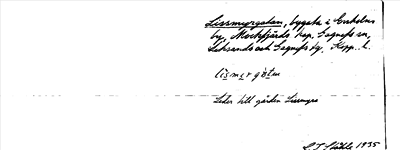 Lissmyrgatan, bygata i Enholns
by, Mockfjärds kap, Gagnefs sn,
Leksands och Gagnefs tg, Kopp. l.
lìsmyrga̲tan
Leder till gården Lissmyra
1935